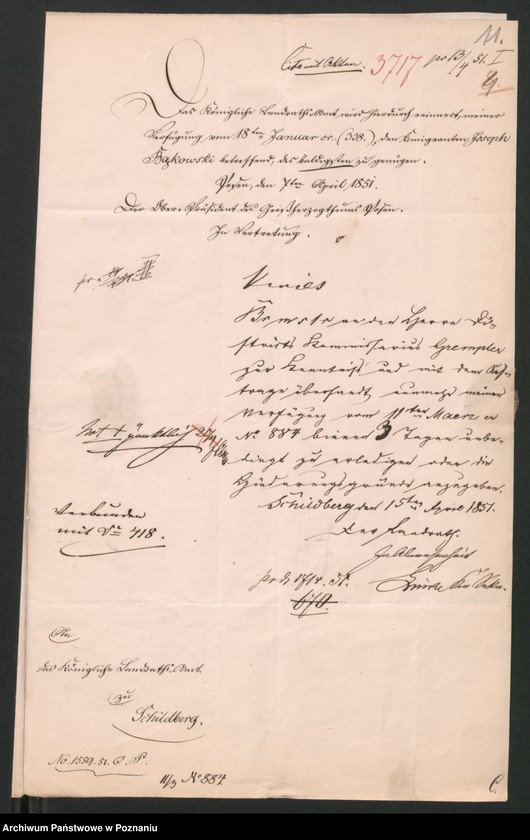 11.
I
Cito mit Akten. 3717 pr 13/4 51.
Das Königliche Landraths-Amt wird hierdurch erinnert, meiner
Verfügung vom 18ten Januar cr. (338.), den Emigranten Joseph
Bąkowski betreffend, des baldigsten zu genügen.
Posen, den 7ten April 1851.
Der Ober-Präsident des Großherzogthums Posen.
In Vertretung.
Br. m. st. an den Herrn Di-
stricts Kommissarius Grempler
zur Kenntniß und mit dem Auf-
trage überhaupt meiner
Verfügung vom 11ten Maerz cr
No 884 binnen 3 Tagen unbe-
dingt zu erledigen oder die
Hinderungsgründe anzugeben.
Schildberg den 15ten April 1851.
Der Landrath.
In Abwesenheit
Not. + pünktlich
Verbunden
mit No 418.
pr d. 17/4. 51.
670.
An
das Königliche Landraths-Amt
zu
Schildberg.
No. 1559. 51. O. P.
11/3 No 884
C.
Archiwum Państwowe w Poznaniu